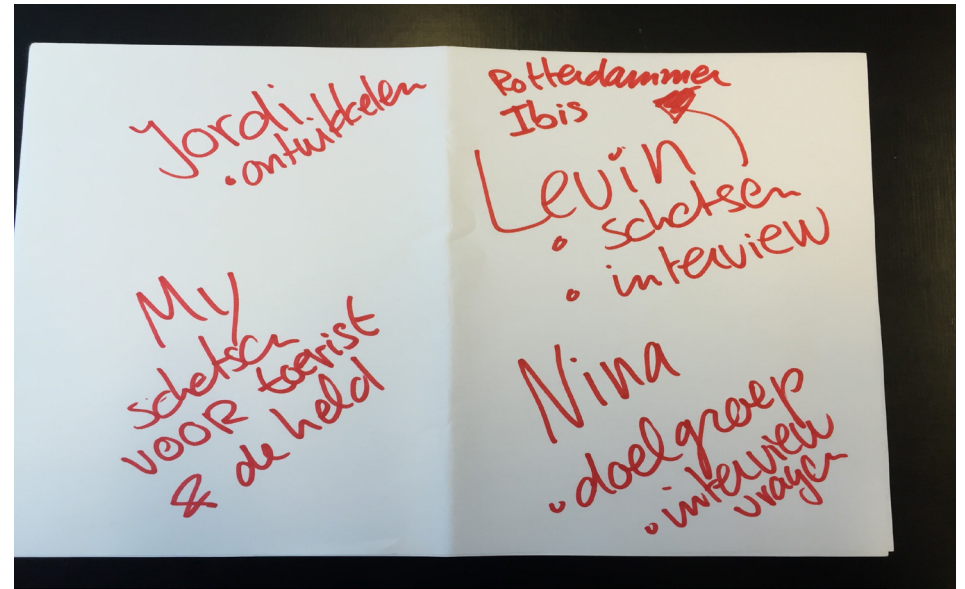 Jordi
• ontwikkelen
My
schetsen
VOOR toerist
& de held
Rotterdammer
Ibis
Levin
• schetsen
• interview
Nina
• doelgroep
• interview
vragen